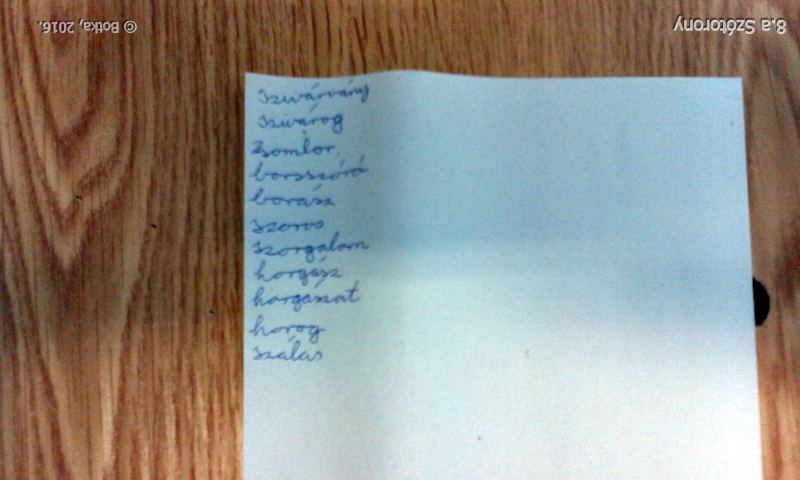 8.a Szótorony
© Botka, 2016.
szivárvány
szivárog
borsszóró
borász
szoros
szorgalom
horgász
horgászat
horog
szálas